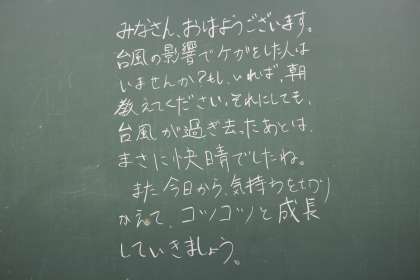 みなさん、おはようございます。
台風の影響でケガをした人は
いませんか?もし、いれば、朝
教えてください。それにしても、
台風が過ぎ去ったあとは、
まさに快晴でしたね。
また今日から、気持ちを切り
かえて、コツコツと成長
していきましょう。